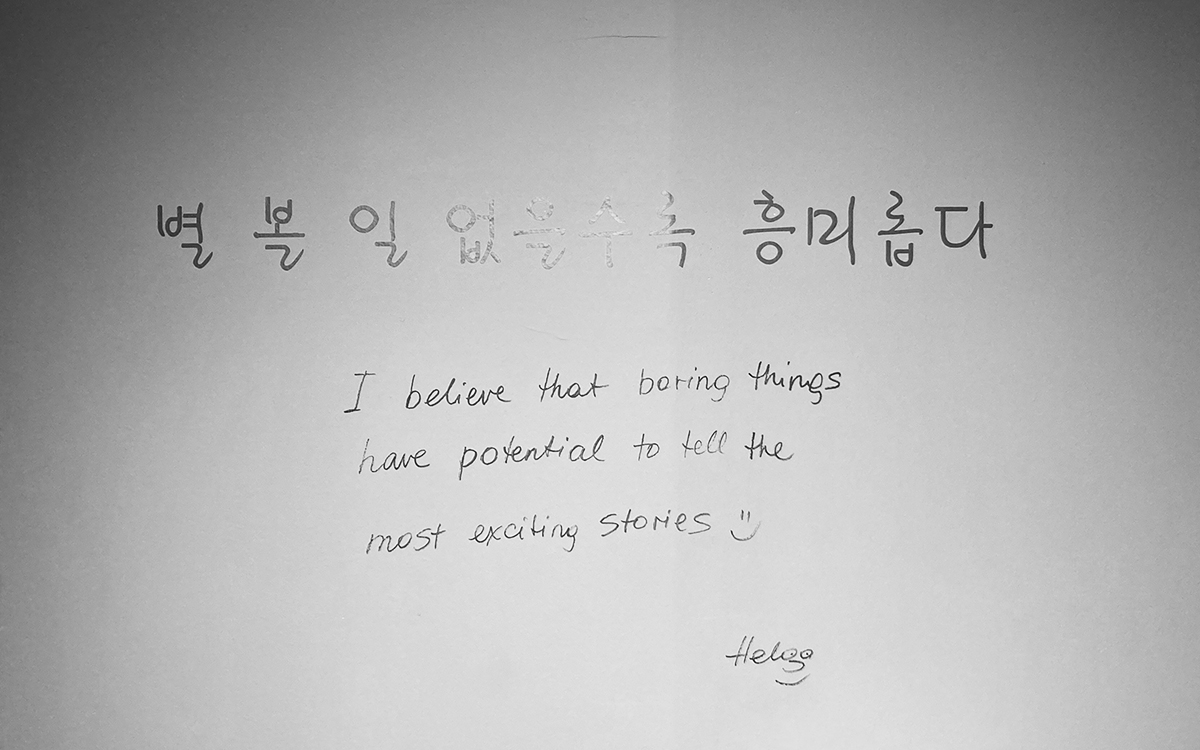 별 볼 일 없을수록 흥미롭다
I believe that boring things
have potential to tell the
most exciting stories
Helga